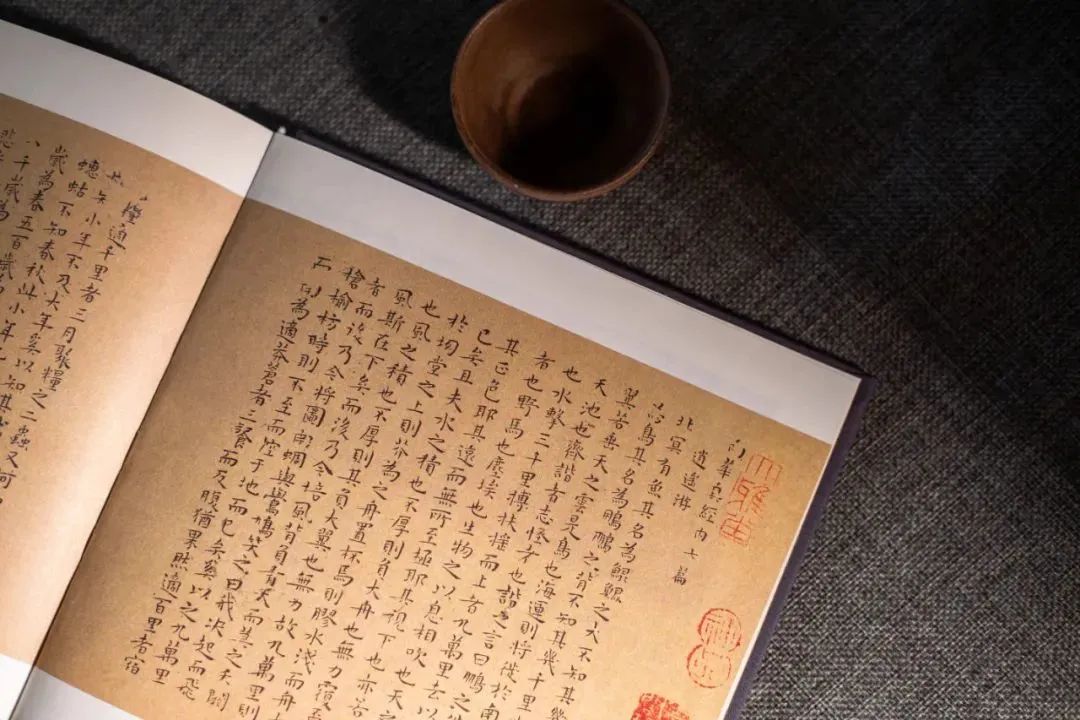 南華真經內七篇
逍遙游
北冥有魚其名為鯤鯤之大不知其幾
為鳥其名為鵬鵬之背不知其幾千里
翼若垂天之雲是鳥也海運則將徙於南
天池也齊諧者志怪者也諧之言曰鵬之
也水擊三千里摶扶搖而上者九萬里去以
者也野馬也塵埃也生物之以息相吹也天之
其正色耶其遠而無所至極耶其視下也亦若
已矣且夫水之積也不厚則負大舟也無力覆
於坳堂之上則芥為之舟置杯焉則膠水淺而舟
也風之積也不厚則其負大翼也無力故九萬里則
風斯在下矣而後乃今培風背負青天而莫之夭閼
者而後乃今將圖南蜩與鷽鳩笑之曰我決起而飛
槍榆枋時則不至而控于地而已矣奚以之九萬里
而南為適莽蒼者三餐而反腹猶果然適百里者宿
糧適千里者三月聚糧之二蟲又何
小年不及大年奚以知其
蟪蛄不知春秋此小年
歲為春五百歲
八千歲為